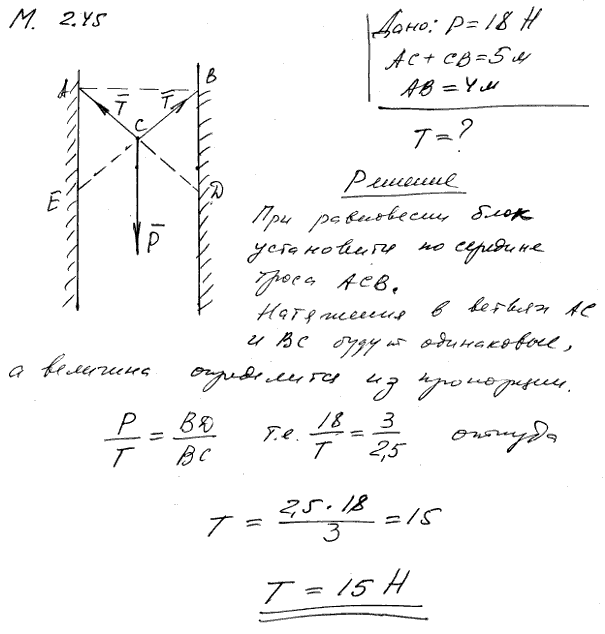 М. 2.45
Дано: P = 18 Н
AC + CB = 5 м
AB = 4 м
T = ?
A
B
T̅
T̅
C
E
D
P̅
Решение
При равновесии блок
установится по середине
троса ACB.
Натяжения в ветвях AC
и BC будут одинаковые,
а величина определится из пропорции.
P/T = BD/BC т.е. 18/T = 3/2,5 откуда
T = 2,5 · 18 / 3 = 15
T = 15 Н